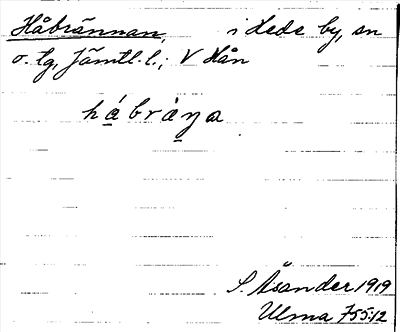 Håbrännan, i Hede by, sn
o. tg, Jämtl. l.; V Hån
hábràŋa
S. Åsander 1919
Ulma 755:12